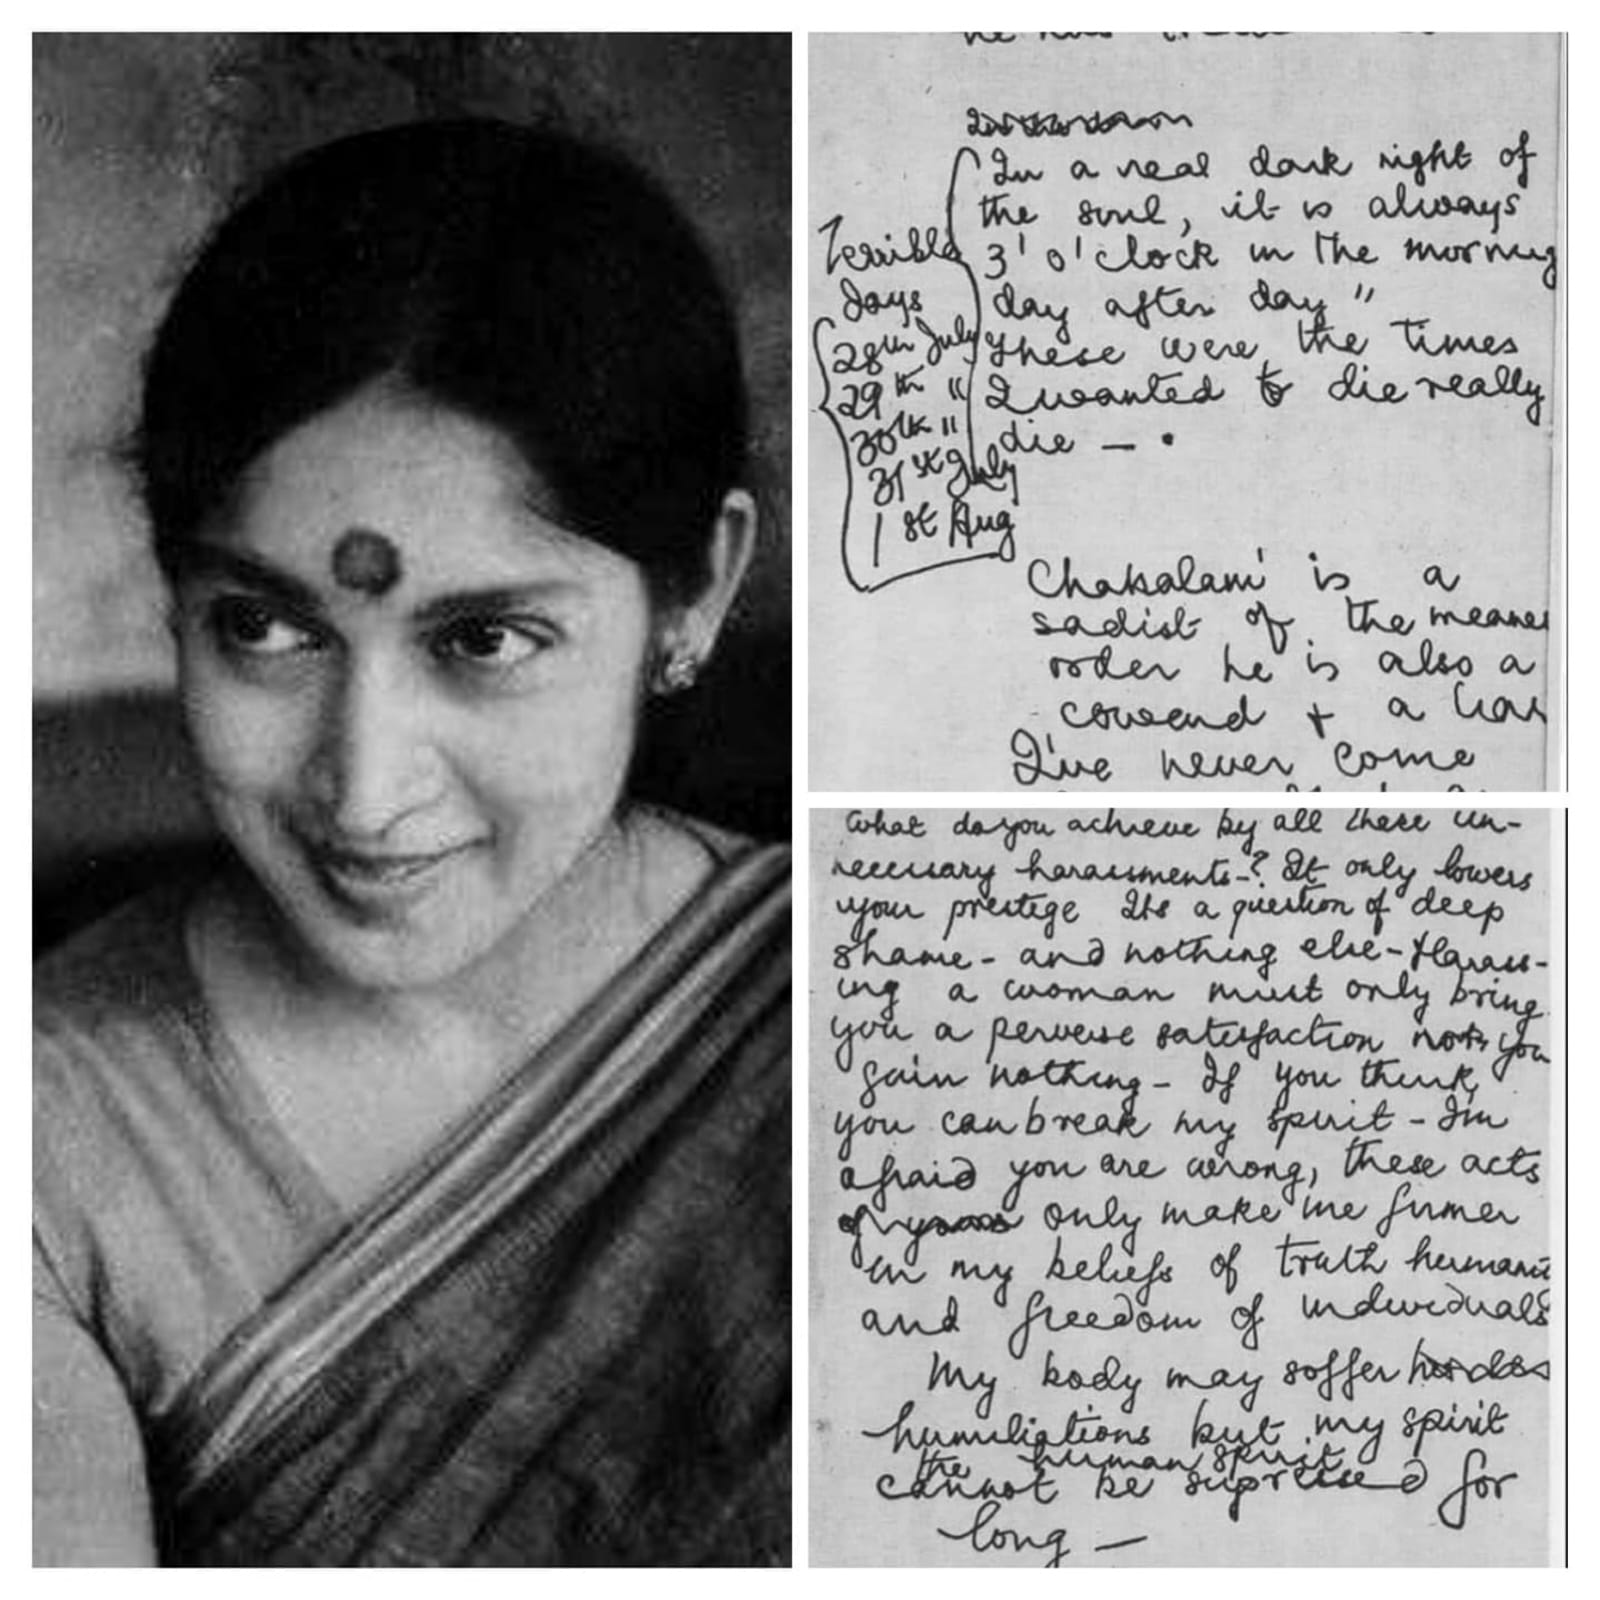 In a real dark night of
the soul, it is always
3' o' clock in the morning
day after day "
These were the times
I wanted to die really
die — .
Terrible
days
28th July
29th "
30th "
31st July
1st Aug
Chakalam' is a
sadist of the meanest
order he is also a
coward + a liar
I've never come
What do you achieve by all these un-
necessary harassments-? It only lowers
your prestige Its a question of deep
shame - and nothing else - Harass-
ing a woman must only bring
you a perverse satisfaction not you
gain nothing - If you think
you can break my spirit - I'm
afraid you are wrong, these acts
of yours only make me firmer
in my beliefs of truth
and freedom of individuals
My body may soffer
humiliations but my spirit
the human spirit
cannot be supressed for
long —